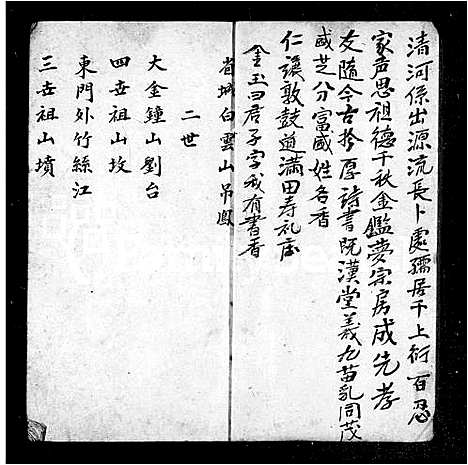 清河係出源流長卜處孺居千上衍百忍
家声思祖德千秋金鑑夢宗房成先孝
友随今古於厚詩書既漢堂義九苗乳同茂
或芝分富國姓各香
仁讓敦鼓道滿田寿礼庄
金玉曰君子字我有書香
省城白雲山吊鳳
二世
大金鐘山劉台
四世祖山坟
東門外竹絲江
三世祖山墳